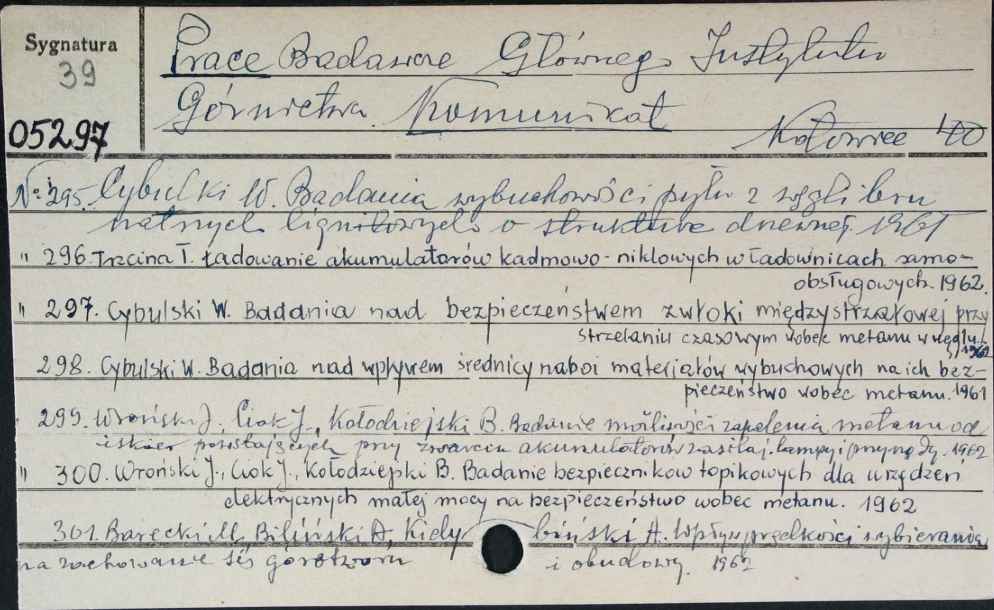 Sygnatura
39
05297
Prace Badawcze Głównego Instytutu
Górnictwa. Komunikat
Katowice 40
Nr 295. Cybulski W. Badania wybuchowości pyłu z węgli bru
natnych lignitowych o strukturze drewnej. 1961
" 296. Trzcina T. Ładowanie akumulatorów kadmowo-niklowych w ładownicach samo-
obsługowych. 1962.
" 297. Cybulski W. Badania nad bezpieczeństwem zwłoki międzystrzałowej przy
strzelaniu czasowym wobec metanu w węglu.
1962
298. Cybulski W. Badania nad wpływem średnicy naboi materjałów wybuchowych na ich bez-
pieczeństwo wobec metanu. 1961
299. Wroński J., Ciok J., Kołodziejski B. Badanie możliwości zapalenia metanu od
iskier powstających przy zwarciu akumulatorów zasilaj. lampy i przyrządy. 1962
" 300. Wroński J., Ciok J., Kołodziejski B. Badanie bezpieczników topikowych dla urządzeń
elektrycznych małej mocy na bezpieczeństwo wobec metanu. 1962
301. Barecki M., Biliński A., Kidybiński A. Wpływ prędkości wybierania
na zachowanie się górotworu i obudowy. 1962